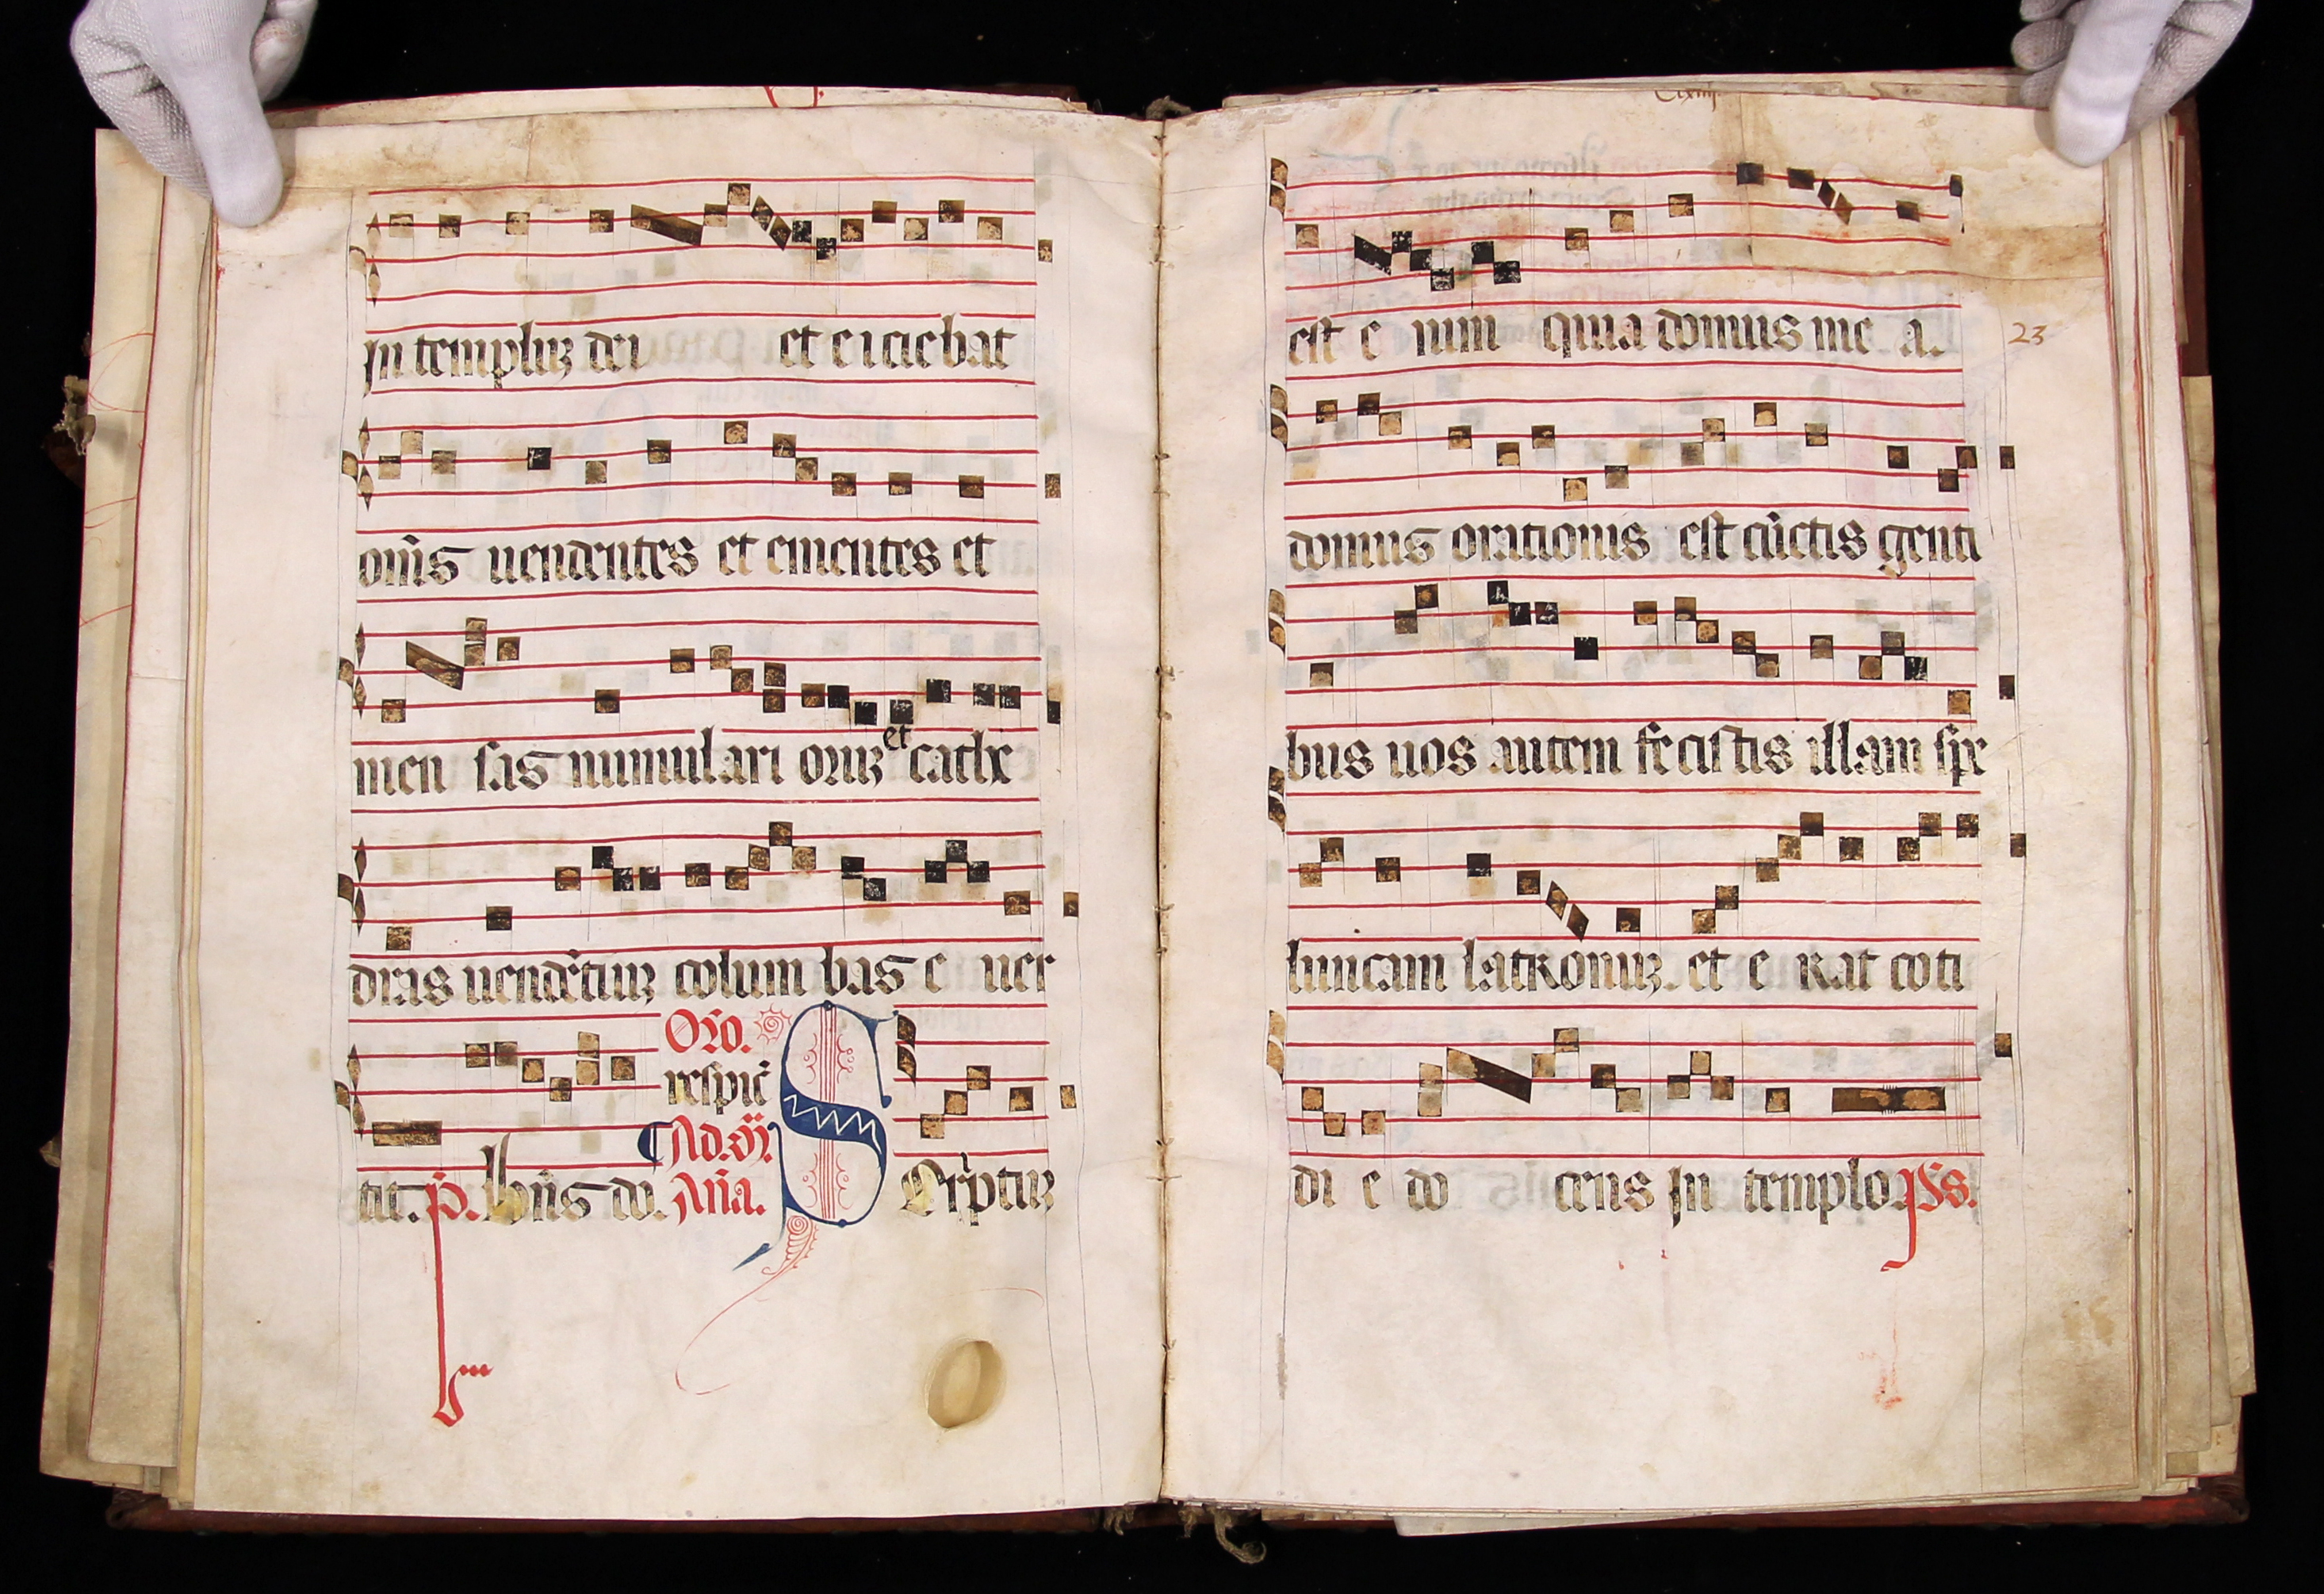 In templuʒ dei et e iciebat
om̄s uendentes et ementes et
men sas numulari oruʒ et cathe
dras uendētiuʒ colum bas e uer
tit. p̄. b̄n̄s do.
Orō.
respic̄
Ad
An̄a.
S Criptuʒ
23
est e nim quia domus me a.
domus orationis est cūctis genti
bus uos autem fecistis illam spe
luncam latronuʒ. et e rat coti
di e do cens In templo. ps.